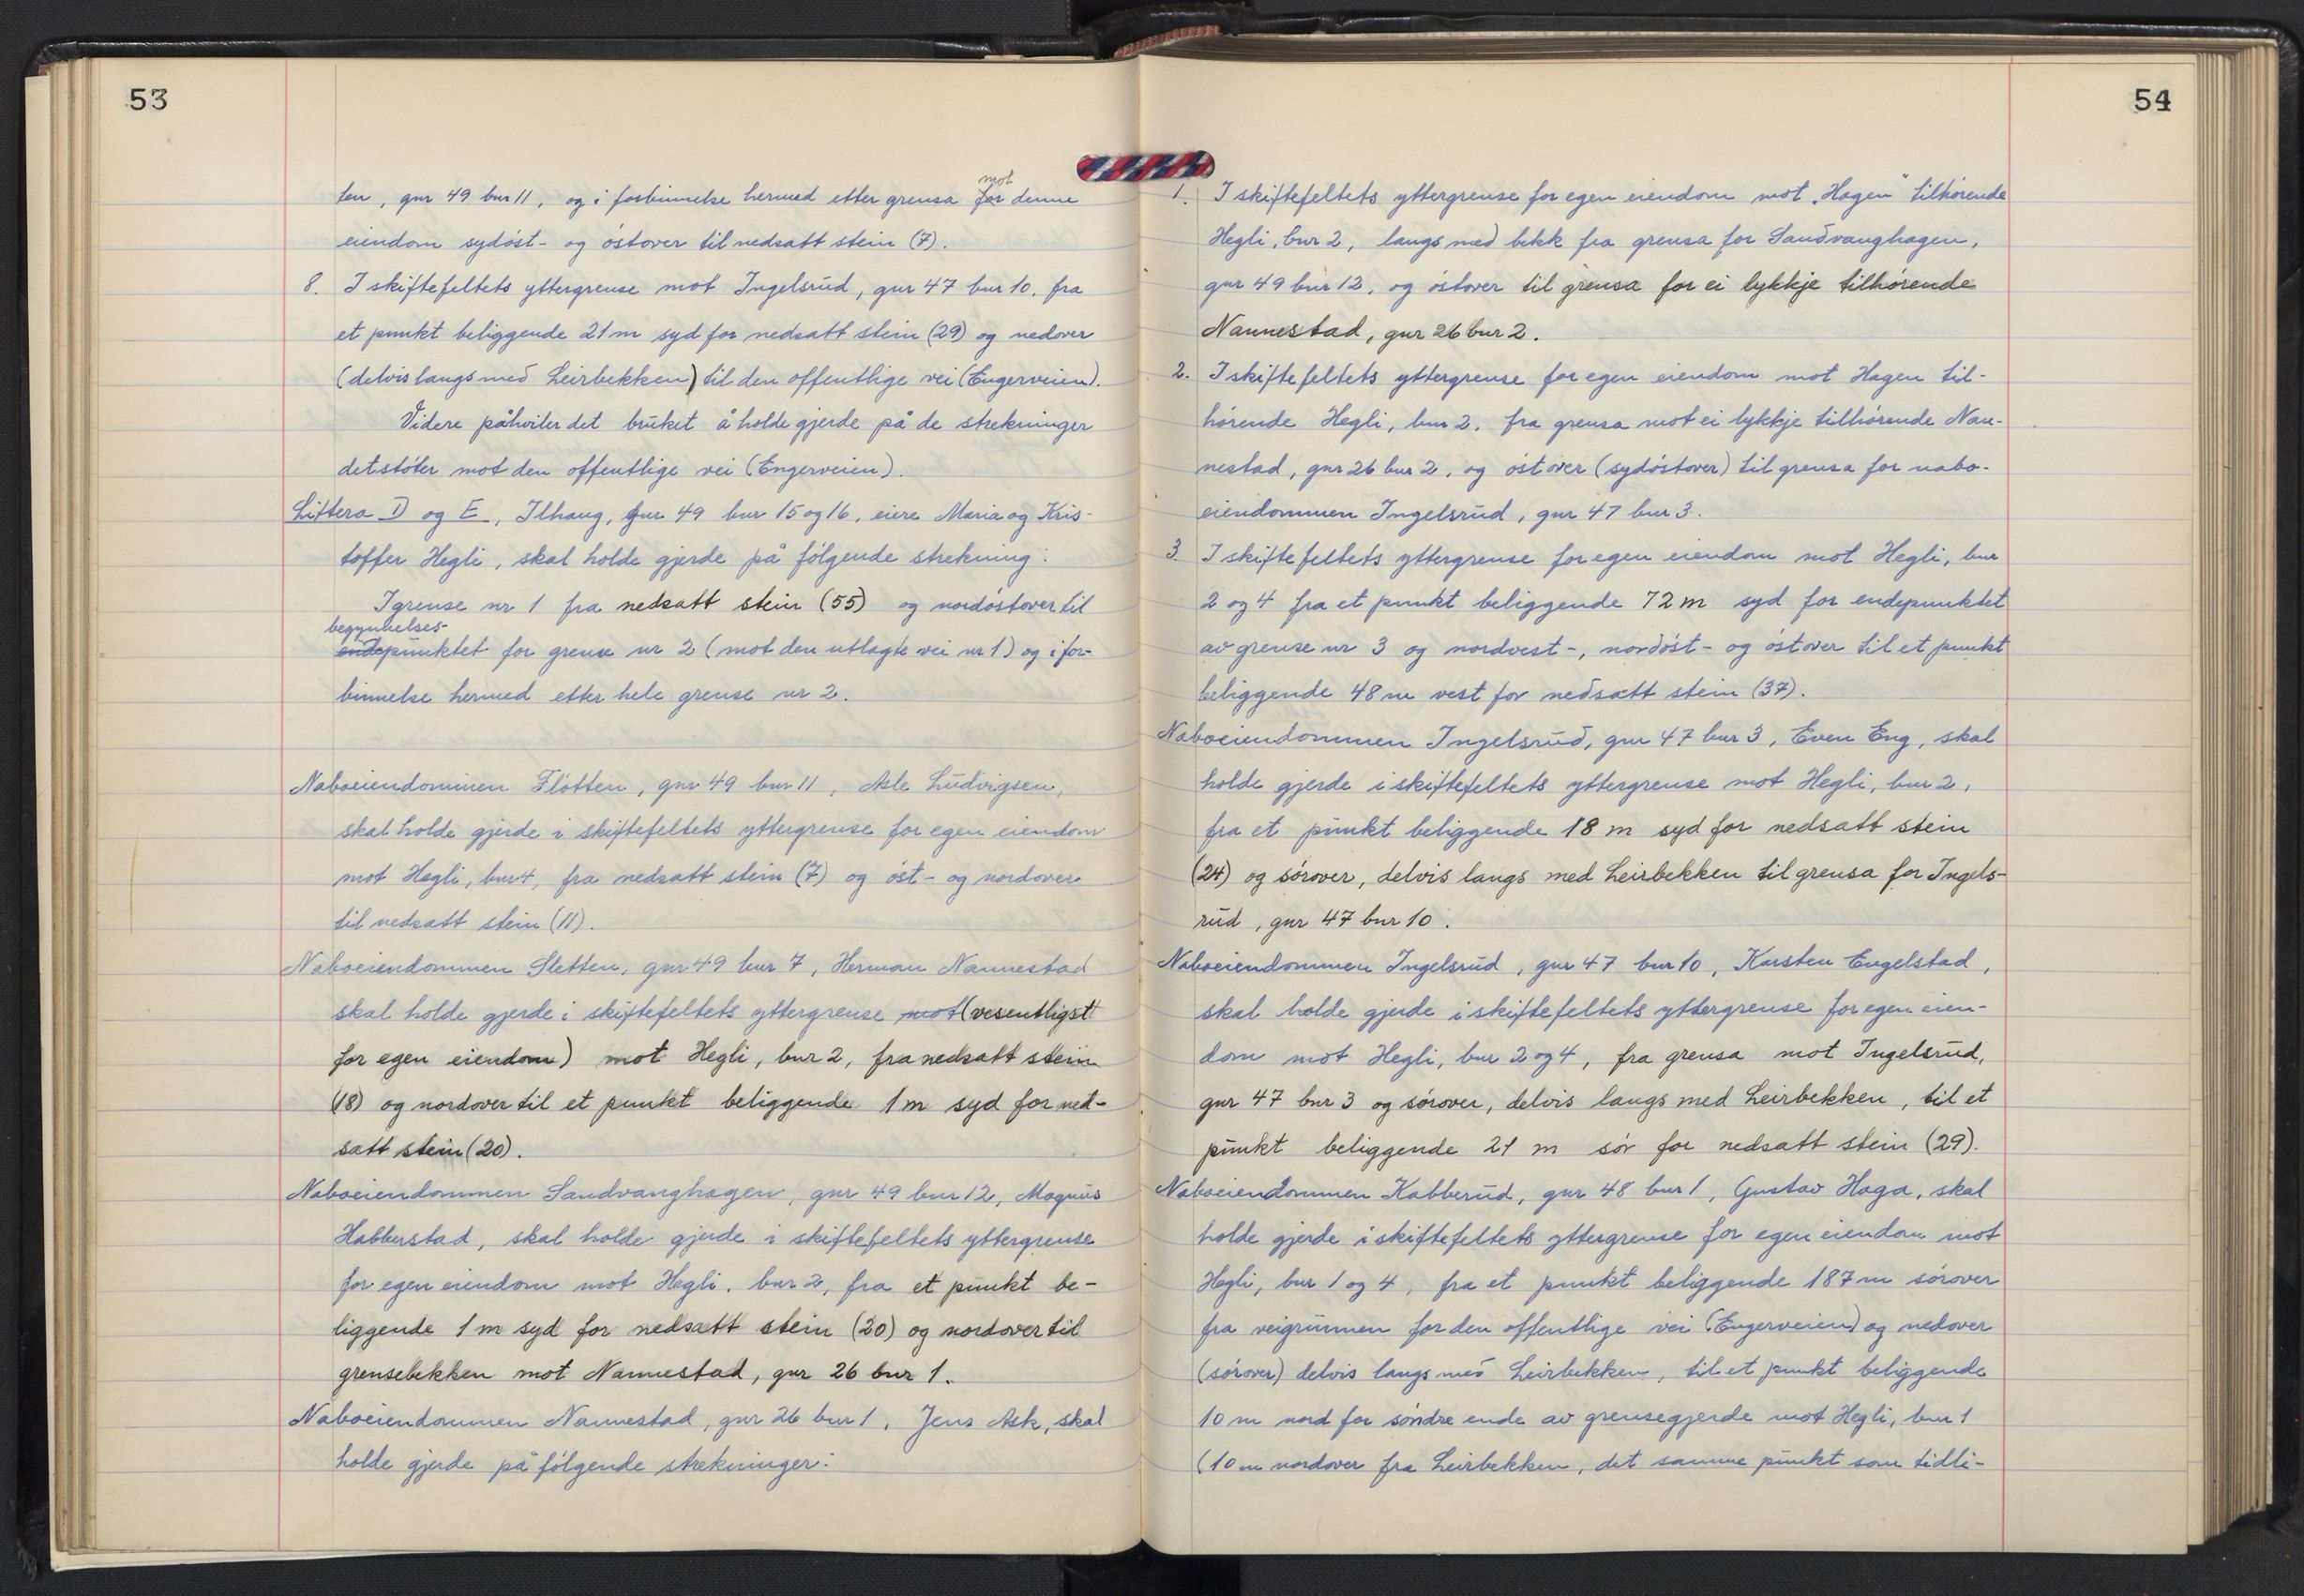 53
ten, gnr 49 bnr 11, og i forbinnelse hermed etter grensa for mot denne
eiendom sydöst- og östover til nedsatt stein (7).
8. I skiftefeltets yttergrense mot Ingelsrud, gnr 47 bnr 10, fra
et punkt beliggende 21 m syd for nedsatt stein (29) og nedover
(delvis langs med Leirbekken) til den offentlige vei (Engerveien).
Videre påhviler det bruket å holde gjerde på de strekninger
det stöter mot den offentlige vei (Engerveien).
Littera D og E, Ilhaug, gnr 49 bnr 15 og 16, eiere Maria og Kris-
toffer Hegli, skal holde gjerde på fölgende strekning:
I grense nr 1 fra nedsatt stein (55) og nordöstover til
begynnelses-
endepunktet for grense nr 2 (mot den utlagte vei nr 1) og i for-
binnelse hermed etter hele grense nr 2.
Naboeiendommen Flötten, gnr 49 bnr 11, Asle Ludvigsen,
skal holde gjerde i skiftefeltets yttergrense for egen eiendom
mot Hegli, bnr 4, fra nedsatt stein (7) og öst- og nordover
til nedsatt stein (11).
Naboeiendommen Sletten, gnr 49 bnr 7, Herman Nannestad
skal holde gjerde i skiftefeltets yttergrense mot (vesentligst
for egen eiendom) mot Hegli, bnr 2, fra nedsatt stein
(18) og nordover til et punkt beliggende 1 m syd for ned-
satt stein (20).
Naboeiendommen Sandvanghagen, gnr 49 bnr 12, Magnus
Habberstad, skal holde gjerde i skiftefeltets yttergrense
for egen eiendom mot Hegli, bnr 2, fra et punkt be-
liggende 1 m syd for nedsatt stein (20) og nordover til
grensebekken mot Nannestad, gnr 26 bnr 1.
Naboeiendommen Nannestad, gnr 26 bnr 1, Jens Ask, skal
holde gjerde på fölgende strekninger:
54
1. I skiftefeltets yttergrense for egen eiendom mot „Hagen" tilhörende
Hegli, bnr 2, langs med bekk fra grensa for Sandvanghagen,
gnr 49 bnr 12, og östover til grensa for ei lykkje tilhörende
Nannestad, gnr 26 bnr 2.
2. I skiftefeltets yttergrense for egen eiendom mot Hagen til-
hörende Hegli, bnr 2, fra grensa mot ei lykkje tilhörende Nan-
nestad, gnr 26 bnr 2, og östover (sydöstover) til grensa for nabo-
eiendommen Ingelsrud, gnr 47 bnr 3.
3. I skiftefeltets yttergrense for egen eiendom mot Hegli, bnr
2 og 4 fra et punkt beliggende 72 m syd for endepunktet
av grense nr 3 og nordvest-, nordöst- og östover til et punkt
beliggende 48 m vest for nedsatt stein (37).
Naboeiendommen Ingelsrud, gnr 47 bnr 3, Even Eng, skal
holde gjerde i skiftefeltets yttergrense mot Hegli, bnr 2,
fra et punkt beliggende 18 m syd for nedsatt stein
(24) og sörover, delvis langs med Leirbekken til grensa for Ingels-
rud, gnr 47 bnr 10.
Naboeiendommen Ingelsrud, gnr 47 bnr 10, Karsten Engelstad,
skal holde gjerde i skiftefeltets yttergrense for egen eien-
dom mot Hegli, bnr 2 og 4, fra grensa mot Ingelsrud,
gnr 47 bnr 3 og sörover, delvis langs med Leirbekken, til et
punkt beliggende 21 m sör for nedsatt stein (29).
Naboeiendommen Kabberud, gnr 48 bnr 1, Gustav Haga, skal
holde gjerde i skiftefeltets yttergrense for egen eiendom mot
Hegli, bnr 1 og 4, fra et punkt beliggende 187 m sörover
fra veigrunnen for den offentlige vei (Engerveien) og nedover
(sörover) delvis langs med Leirbekken, til et punkt beliggende
10 m nord for söndre ende av grensegjerde mot Hegli, bnr 1
(10 m nordover fra Leirbekken, det samme punkt som tidli-